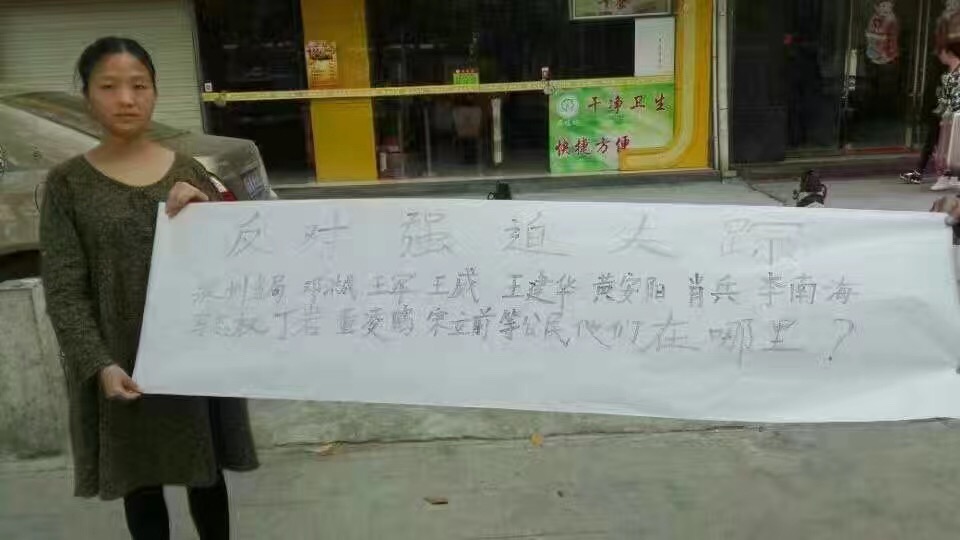 反对强迫失踪
永州主局 邓洪 王军 王成 王建华 黄安阳 肖兵 李南海
丁岩 董奕鹏 宋立前等公民他们在哪里？
干净卫生
快捷方便